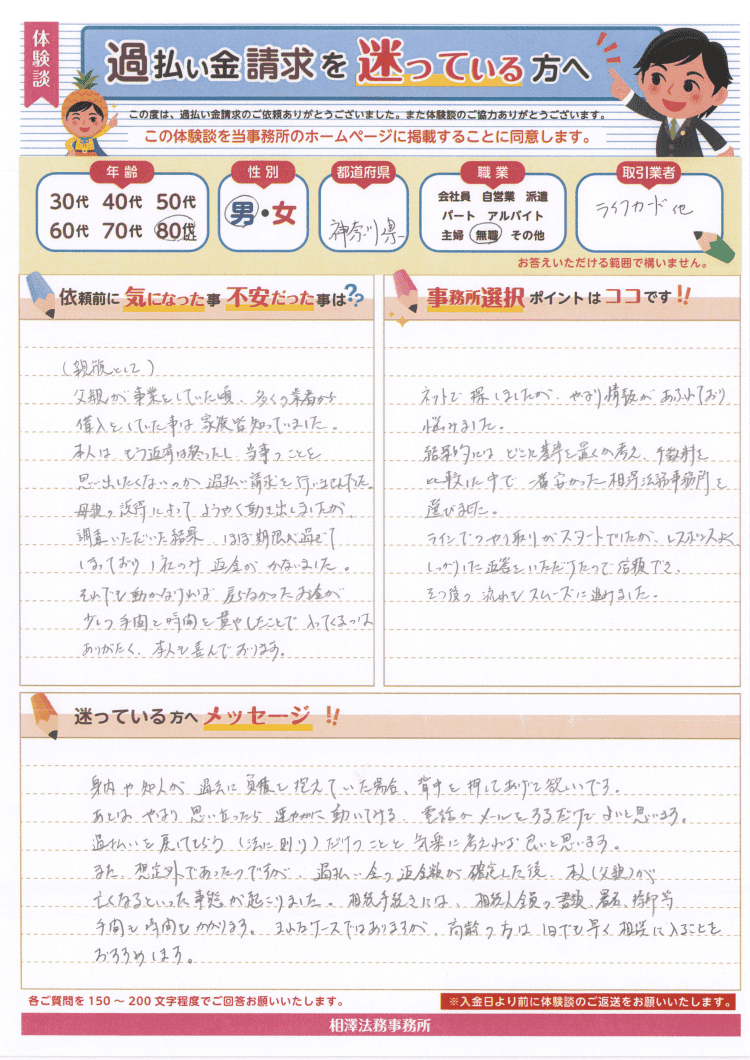 体験談
過払い金請求を迷っている方へ
この度は、過払い金請求のご依頼ありがとうございました。また体験談のご協力ありがとうございます。
この体験談を当事務所のホームページに掲載することに同意します。
年齢
30代 40代 50代
60代 70代 80代
性別
男・女
都道府県
神奈川県
職業
会社員 自営業 派遣
パート アルバイト
主婦 無職 その他
取引業者
ライフカード他
お答えいただける範囲で構いません。
依頼前に気になった事 不安だった事は??
(親族として)
父親が事業をしていた頃、多くの業者から
借入をしていた事は家族皆知っていました。
本人は、もう返済は終ったし、当事のことを
思い出したくないのか過払い請求を行いませんでした。
母親の説得によってようやく動き出しましたが、
調査いただいた結果、ほぼ期限が過ぎて
しまっており1社のみ返金がかないました。
それでも動かなければ戻らなかったお金が
少しの手間と時間を費やしたことで入ってくるのは
ありがたく、本人も喜んでおります。
事務所選択ポイントはココです!!
ネットで探しましたが、やはり情報があふれており
悩みました。
結果的にはどこに基準を置くか考え、手数料を
比較した中で一番安かった相澤法務事務所を
選びました。
ラインでのやり取りがスタートでしたが、レスポンスよく
しっかりした返答をいただけたので信頼でき、
その後の流れもスムーズに進めました。
迷っている方へメッセージ!!
身内や知人が過去に負債を抱えていた場合、背中を押してあげて欲しいです。
あとはやはり思い立ったら速やかに動いてみる、電話かメールをするだけでよいと思います。
過払いを戻してもらう(法に則り)だけのことと気楽に考えれば良いと思います。
また、想定外であったのですが、過払い金の返金額が確定した後、本人(父親)が
亡くなるといった事態が起こりました。相続手続きには、相続人全員の書類、署名、捺印等
手間も時間もかかります。まれなケースではありますが、高齢の方は1日でも早く相談に入ることを
おすすめします。
各ご質問を150～200文字程度でご回答お願いいたします。
※入金日より前に体験談のご返送をお願いいたします。
相澤法務事務所